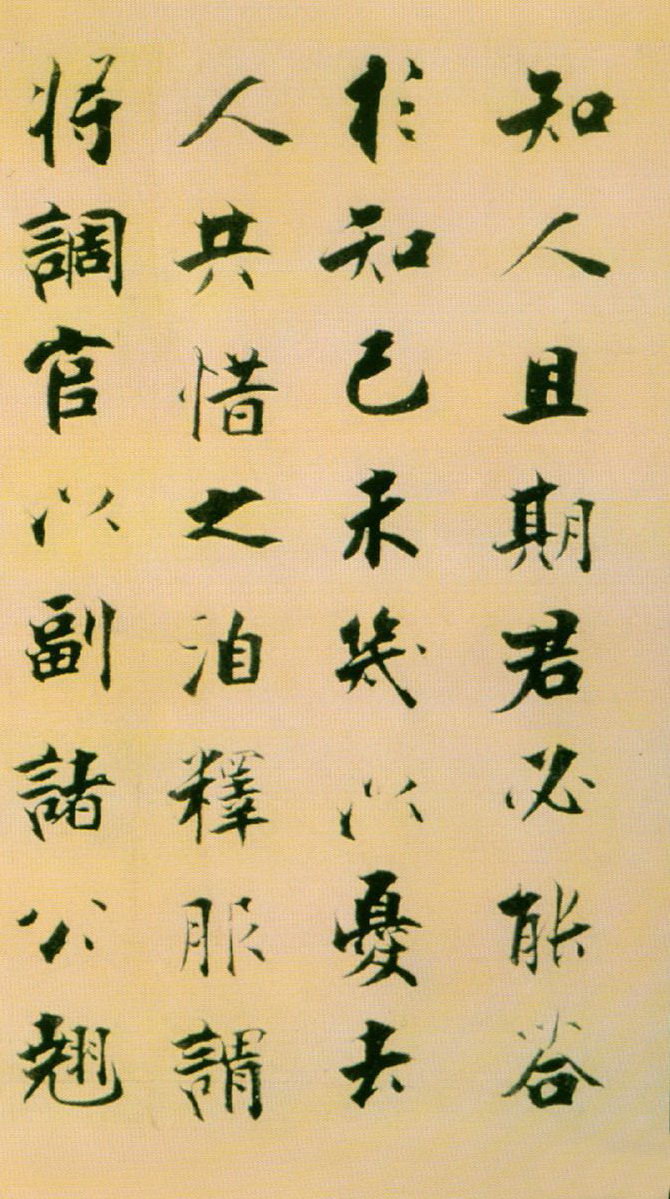 知人且期君必能答
於知己未幾以憂去
人共惜之洎釋服謂
將調官以副諸公翹